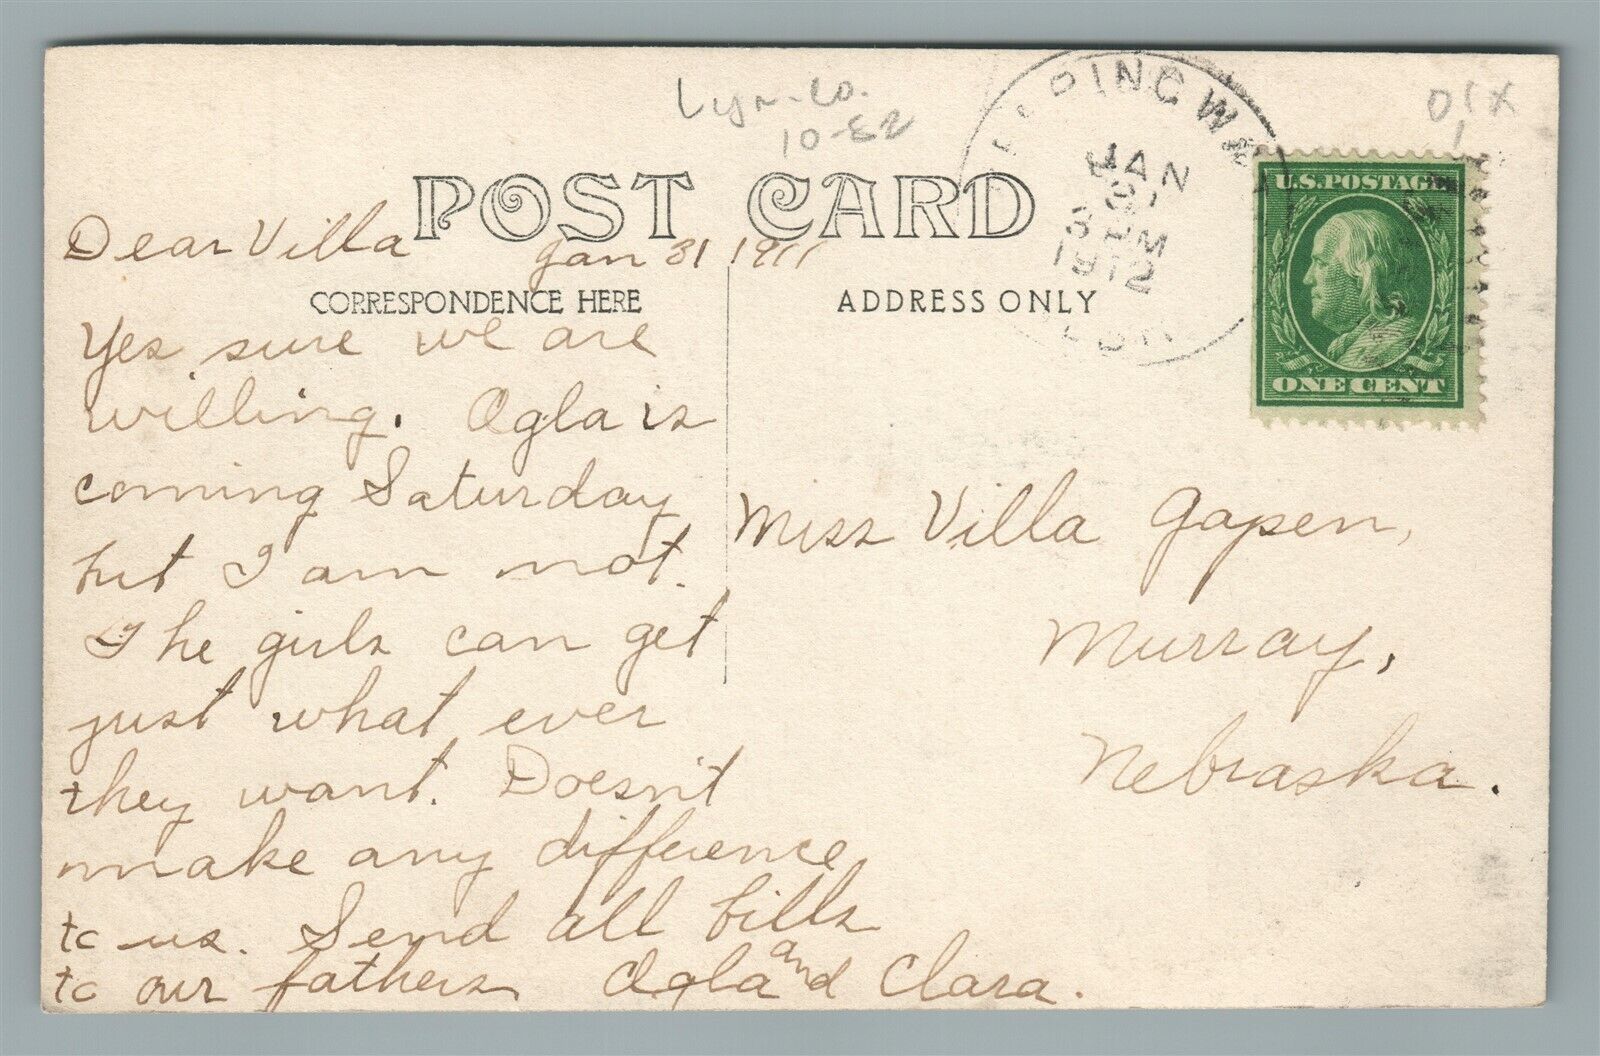 Lyn-co.
10-82
POST CARD
Dear Villa Jan 31 1911
CORRESPONDENCE HERE
ADDRESS ONLY
JAN
31
3 PM
1912
U.S. POSTAGE
ONE CENT
Yes sure we are
willing. Ogla is
coming Saturday
but I am not.
The girls can get
just what ever
they want. Doesn't
make any difference
to us. Send all bills
to our fathers Ogla and Clara.
Miss Villa Gapen,
Murray,
Nebraska.